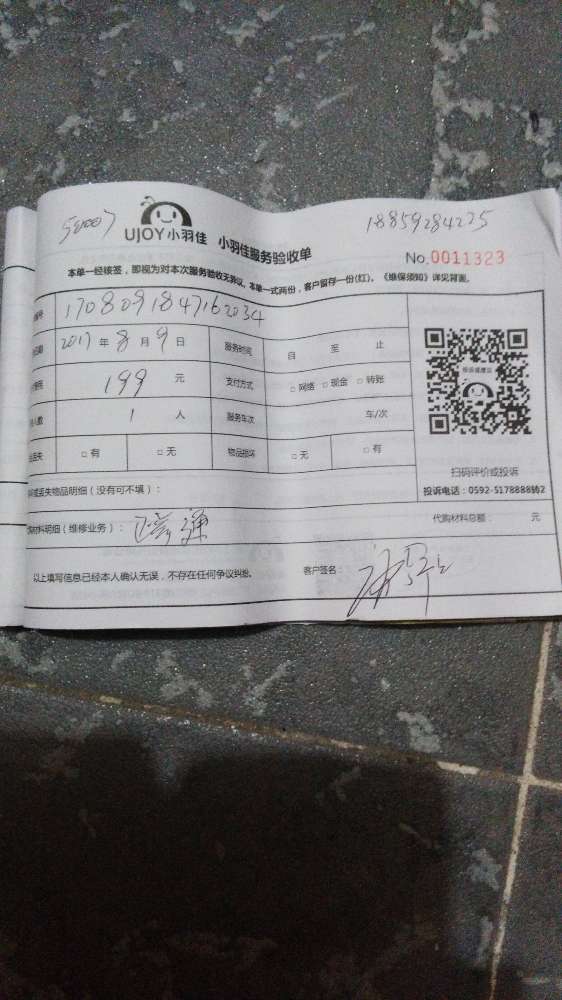 59007
18859284225
UJOY小羽佳 小羽佳服务验收单
No.0011323
本单一经核签，即视为对本次服务验收无异议。本单一式两份，客户留存一份(红)。《维保须知》详见背面。
1708091847162034
2017 年 8 月 9 日 服务时间 自 至 止
199 元 支付方式 □网络 □现金 □转账
人数 1 人 服务车次 车/次
丢失 □有 □无 物品损坏 □无 □有
扫码评价或投诉
投诉电话：0592-5178888转2
或丢失物品明细（没有可不填）：
材料明细（维修业务）： 疏通 代购材料总额 元
以上填写信息已经本人确认无误，不存在任何争议纠纷。 客户签名：